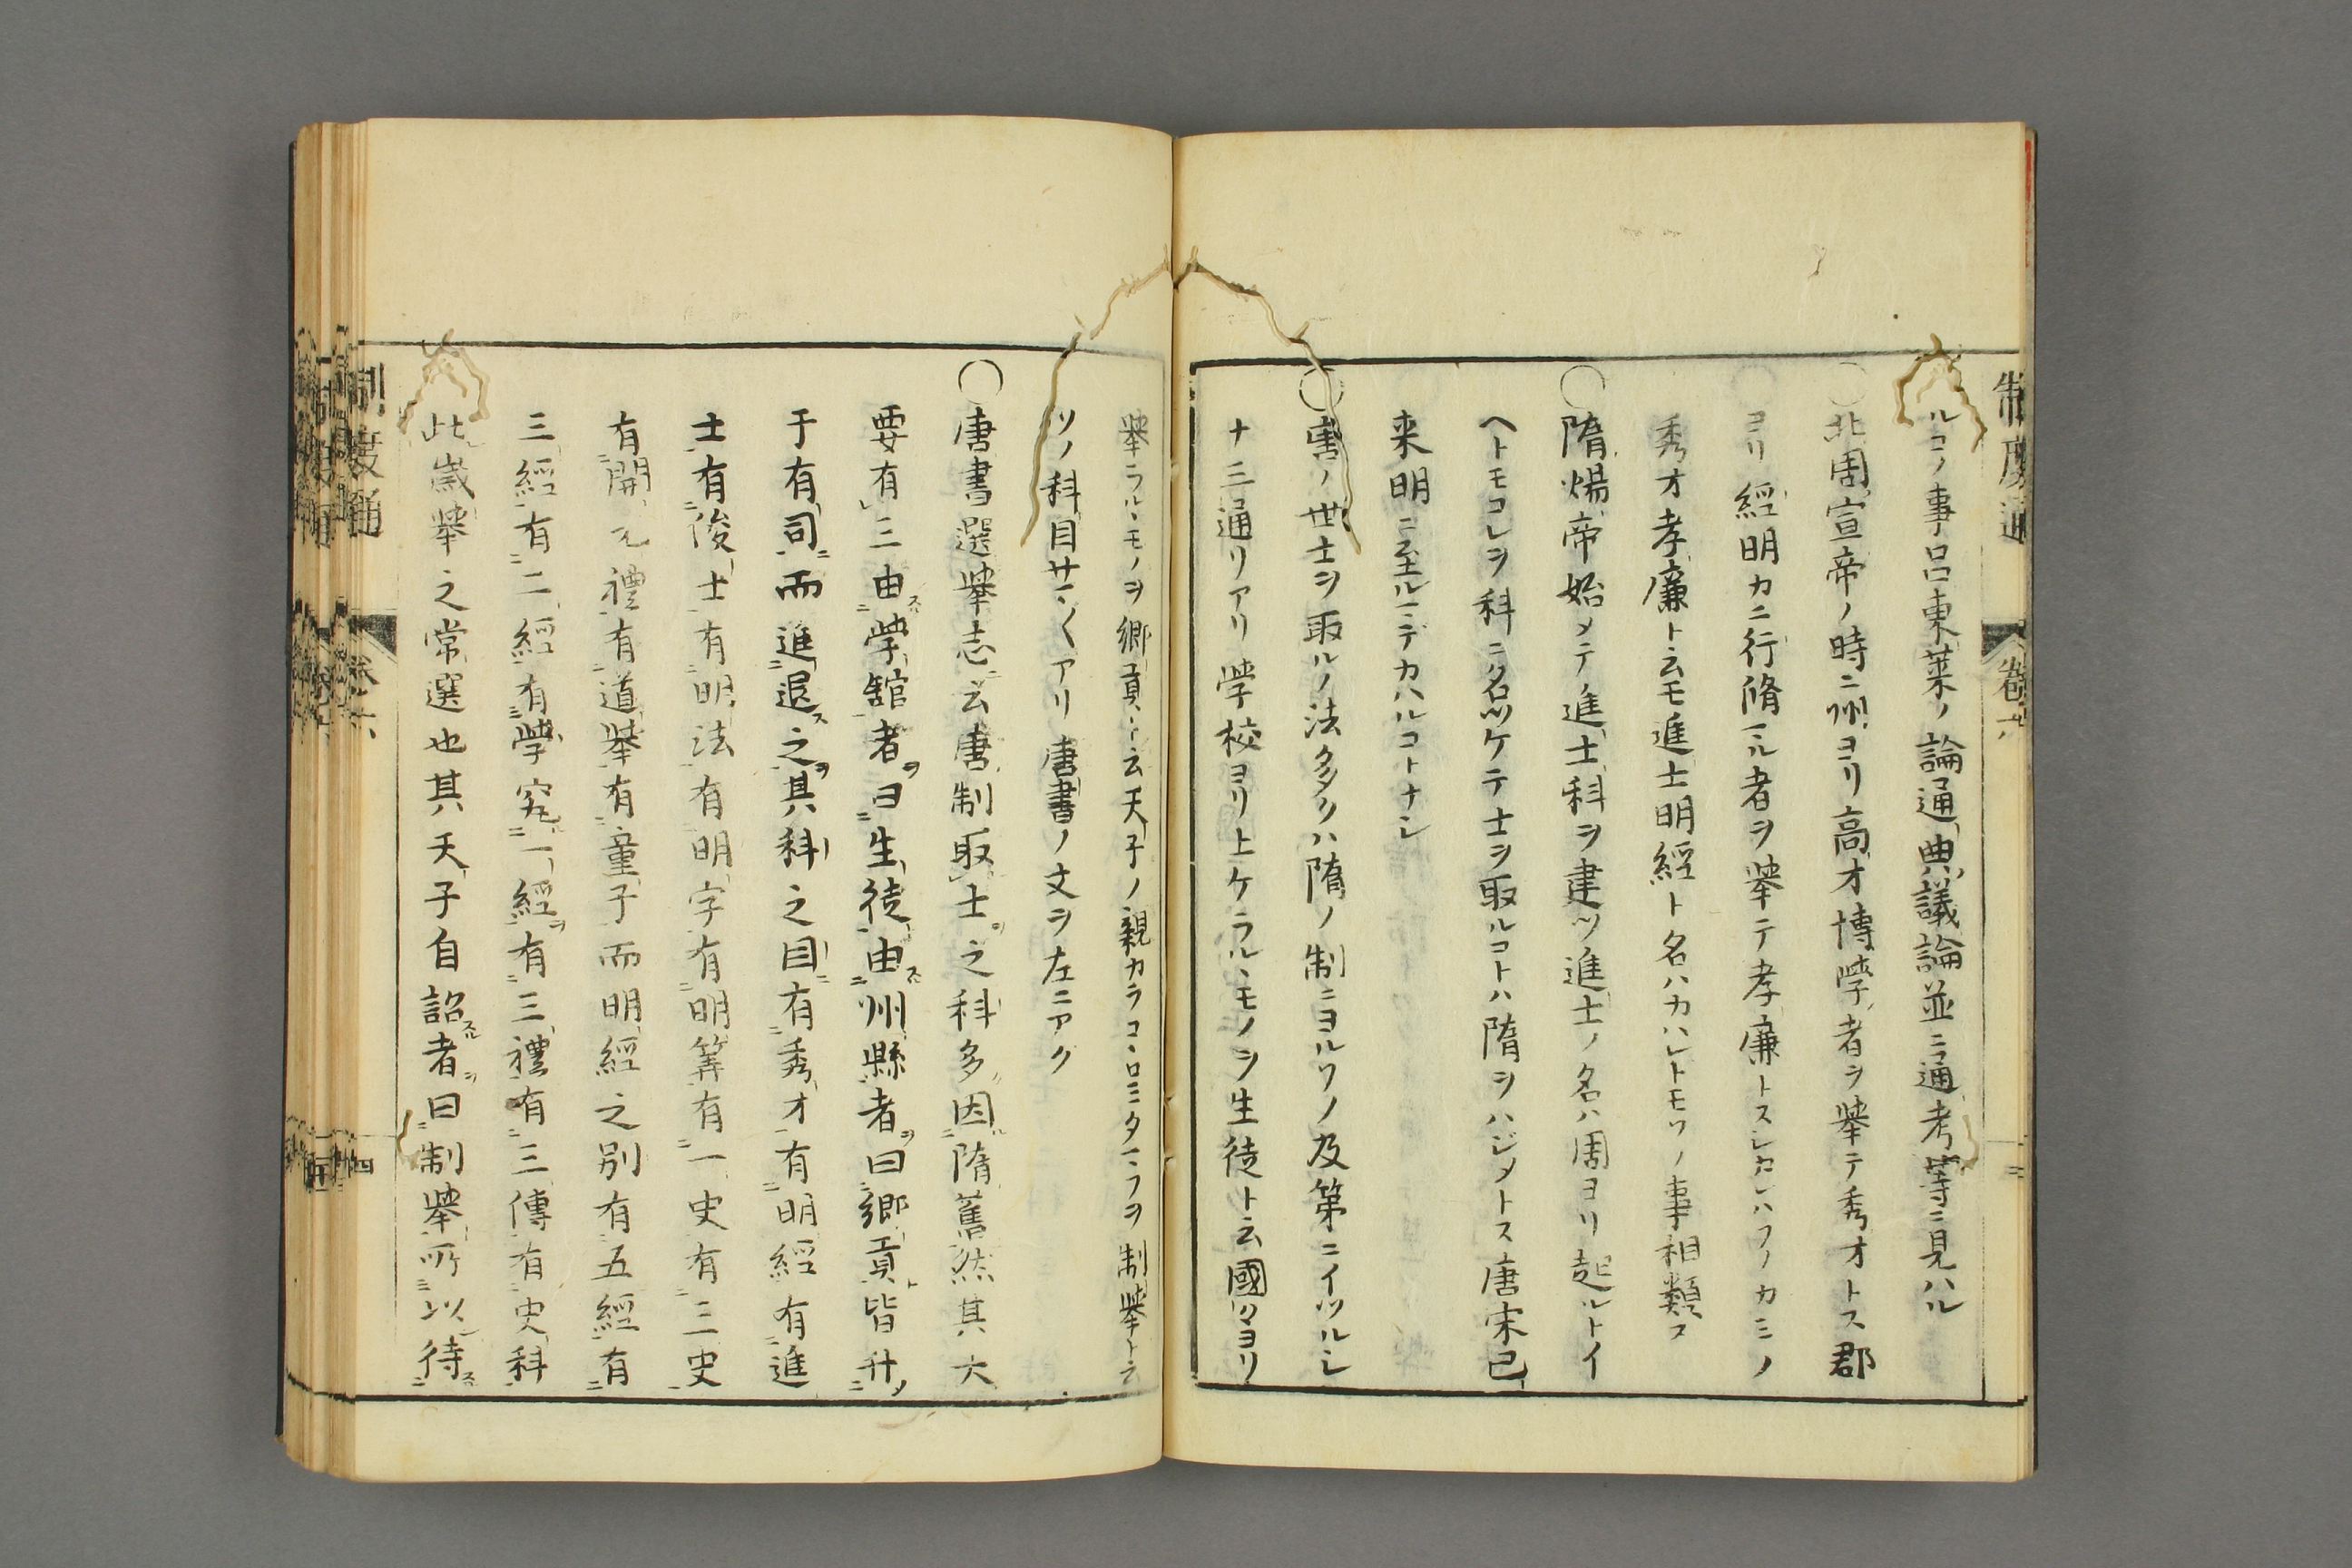 制度通 卷六
ルコノ事呂東萊ノ論通典議論並ニ通考等ニ見ハル
○北周宣帝ノ時ニ州ヨリ高才博學者ヲ舉テ秀才トス郡
ヨリ經明カニ行脩ル者ヲ舉テ孝廉トスシカレハソノカミノ
秀才孝廉ト云モ進士明經ト名ハカハレトモソノ事相類ス
○隋煬帝始メテ進士科ヲ建ツ進士ノ名ハ周ヨリ起ルトイ
ヘトモコレヲ科ニ名ツケテ士ヲ取ルコトハ隋ヲハジメトス唐宋已
来明ニ至ルマデカハルコトナシ
○唐ノ世士ヲ取ルノ法多クハ隋ノ制ニヨルソノ及第ニイツルシ
ナ三通リアリ學校ヨリ上ケラルヽモノヲ生徒ト云國々ヨリ
舉ラルヽモノヲ鄉貢ト云天子ノ親カラコヽロミタマフヲ制舉ト云
ソノ科目サマ〱アリ唐書ノ文ヲ左ニアク
○唐書選舉志云唐制取士之科多因隋舊然其大
要有三由學館者曰生徒由州縣者曰鄉貢皆升
于有司而進退之其科之目有秀才有明經有進
士有俊士有明法有明字有明筭有一史有三史
有開元禮有道舉有童子而明經之別有五經有
三經有二經有學究一經有三禮有三傳有史科
此歲舉之常選也其天子自詔者曰制舉所以待
制度通 卷六 四